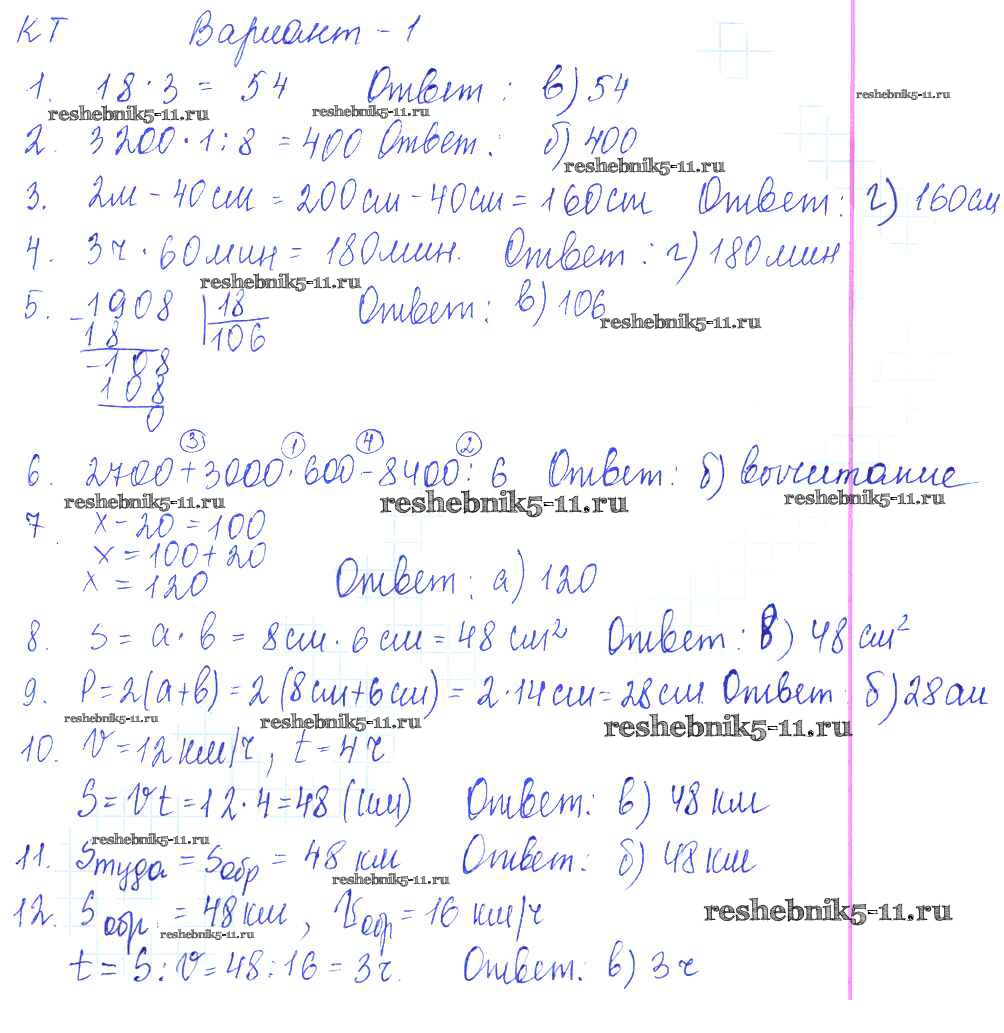 КТ Вариант - 1
1. 18 · 3 = 54 Ответ: в) 54
reshebnik5-11.ru reshebnik5-11.ru reshebnik5-11.ru
2. 3200 · 1 : 8 = 400 Ответ: б) 400
reshebnik5-11.ru
3. 2м - 40см = 200см - 40см = 160см Ответ: г) 160см
4. 3ч · 60мин = 180мин. Ответ: г) 180мин
reshebnik5-11.ru
5. - 1908 | 18 Ответ: в) 106
reshebnik5-11.ru
18 106
- 108
108
0
3 1 4 2
6. 2700 + 3000 · 600 - 8400 : 6 Ответ: б) вычитание
reshebnik5-11.ru reshebnik5-11.ru reshebnik5-11.ru
7. x - 20 = 100
x = 100 + 20
x = 120 Ответ: а) 120
8. S = a · b = 8см · 6см = 48 см² Ответ: в) 48 см²
9. P = 2(a+b) = 2(8см+6см) = 2 · 14см = 28см. Ответ: б) 28см
reshebnik5-11.ru reshebnik5-11.ru reshebnik5-11.ru
10. v = 12 км/ч, t = 4ч
S = vt = 12 · 4 = 48 (км) Ответ: в) 48 км
reshebnik5-11.ru
11. Sтуда = Sобр = 48 км Ответ: б) 48 км
reshebnik5-11.ru
12. Sобр. = 48 км, Vобр = 16 км/ч
reshebnik5-11.ru reshebnik5-11.ru
t = S : v = 48 : 16 = 3ч. Ответ: в) 3ч